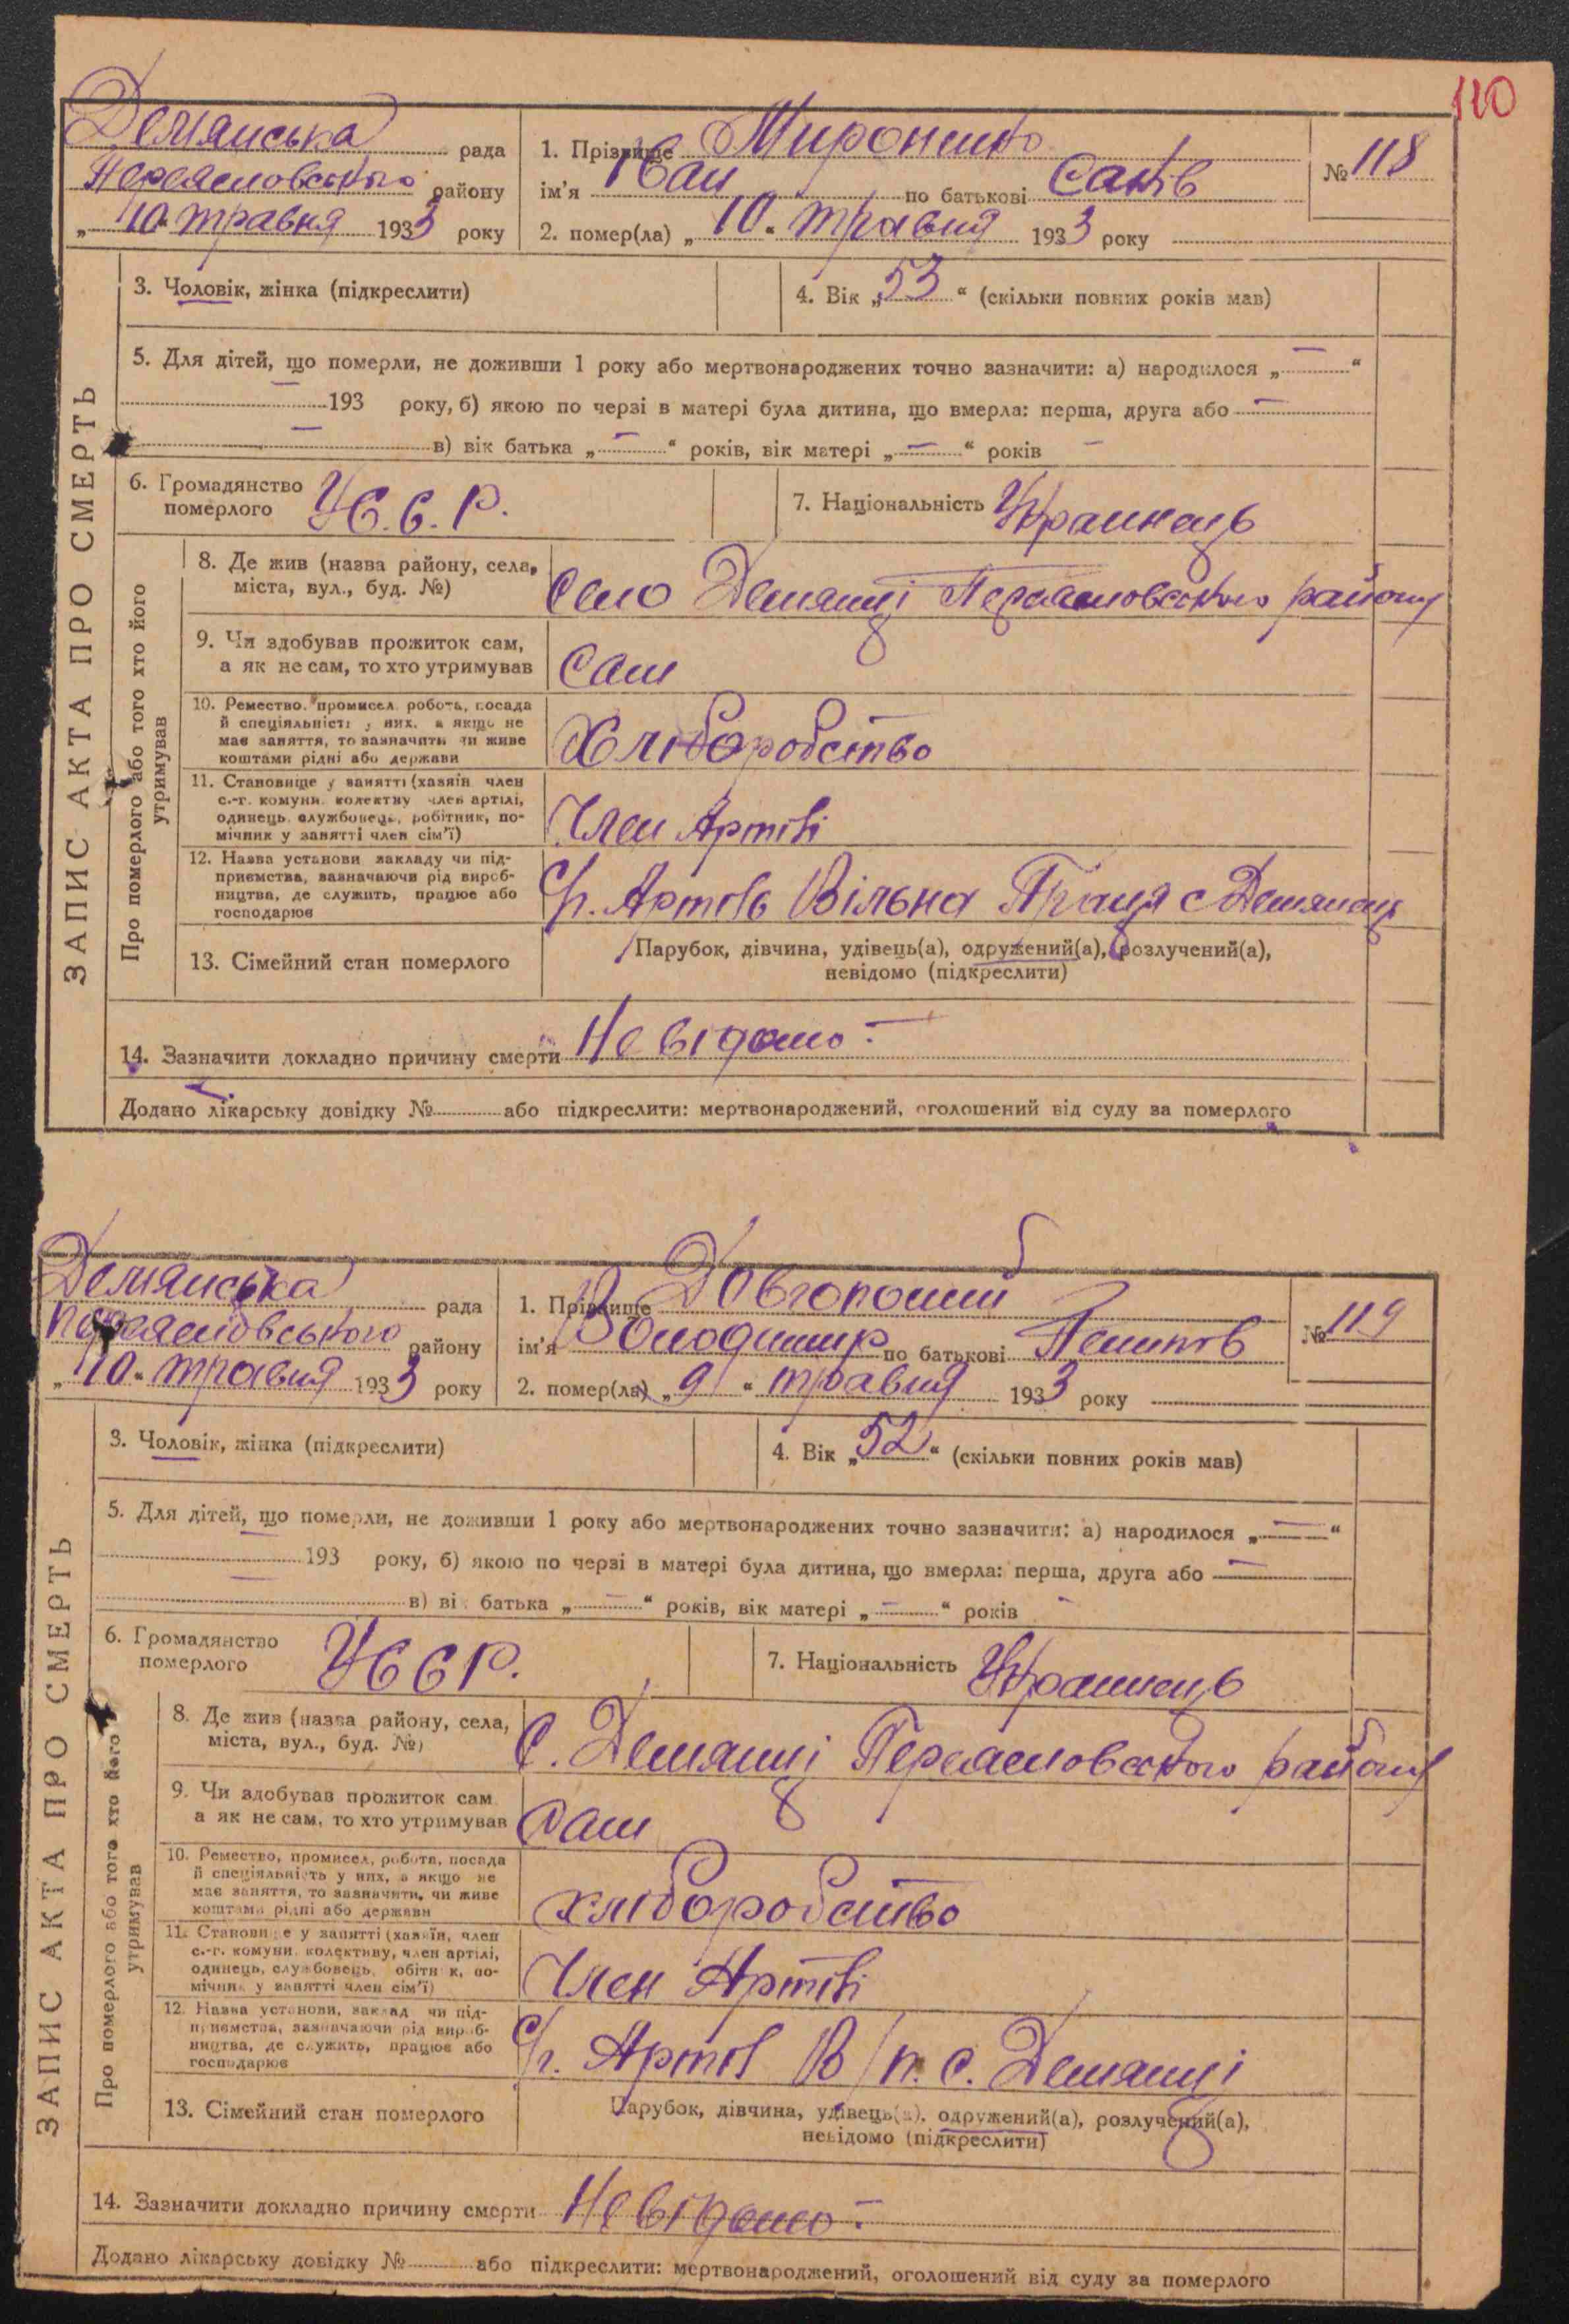 110
ЗАПИС АКТА ПРО СМЕРТЬ
Демянська рада
Переясловського району
„10" травня 1933 року
1. Прізвище Мироненко
ім'я Іван по батькові Саків
№ 118
2. помер(ла) „10" травня 1933 року
3. Чоловік, жінка (підкреслити)
4. Вік „53" (скільки повних років мав)
5. Для дітей, що померли, не доживши 1 року або мертвонароджених точно зазначити: а) народилося „—"
— 193 року, б) якою по черзі в матері була дитина, що вмерла: перша, друга або —
— в) вік батька „—" років, вік матері „—" років —
6. Громадянство
померлого
У.С.С.Р.
7. Національність Українець
Про померлого або того хто його
утримував
8. Де жив (назва району, села,
міста, вул., буд. №)
Село Демянці Переясловського району
9. Чи здобував прожиток сам,
а як не сам, то хто утримував
Сам
10. Ремество, промисел, робота, посада
й спеціяльність у них, а якщо не
має заняття, то зазначити чи живе
коштами рідні або держави
Хліборобство
11. Становище у занятті (хазяїн, член
с.-г. комуни, колективу, член артілі,
одинець, службовець, робітник, по-
мічник у занятті член сім'ї)
Член Артілі
12. Назва установи закладу чи під-
приємства, зазначаючи рід вироб-
ництва, де служить, працює або
господарює
С/г. Артіль Вільна Праця с Демянець
13. Сімейний стан померлого
Парубок, дівчина, удівець(а), одружений(а), розлучений(а),
невідомо (підкреслити)
14. Зазначити докладно причину смерти Невідомо —
Додано лікарську довідку № або підкреслити: мертвонароджений, оголошений від суду за померлого
ЗАПИС АКТА ПРО СМЕРТЬ
Демянська рада
Переясловського району
„10" травня 1933 року
1. Прізвище Довгополий
ім'я Володимир по батькові Пилипів
№ 119
2. помер(ла) „9" травня 1933 року
3. Чоловік, жінка (підкреслити)
4. Вік „52" (скільки повних років мав)
5. Для дітей, що померли, не доживши 1 року або мертвонароджених точно зазначити: а) народилося „—"
— 193 року, б) якою по черзі в матері була дитина, що вмерла: перша, друга або —
в) вік батька „—" років, вік матері „—" років —
6. Громадянство
померлого
УССР.
7. Національність Українець
Про померлого або того хто його
утримував
8. Де жив (назва району, села,
міста, вул., буд. №)
С. Демянці Переясловського району
9. Чи здобував прожиток сам
а як не сам, то хто утримував
Сам
10. Ремество, промисел, робота, посада
й спеціяльність у них, а якщо не
має заняття, то зазначити, чи живе
коштами рідні або держави
хліборобство
11. Становище у занятті (хазяїн, член
с.-г. комуни, колективу, член артілі,
одинець, службовець, робітник, по-
мічник у занятті член сім'ї)
Член Артілі
12. Назва установи, заклад чи під-
приємства, зазначаючи рід вироб-
ництва, де служить, працює або
господарює
С/г. Артіл В/п. с. Демянці
13. Сімейний стан померлого
Парубок, дівчина, удівець(а), одружений(а), розлучений(а),
невідомо (підкреслити)
14. Зазначити докладно причину смерти Невідомо —
Додано лікарську довідку № або підкреслити: мертвонароджений, оголошений від суду за померлого